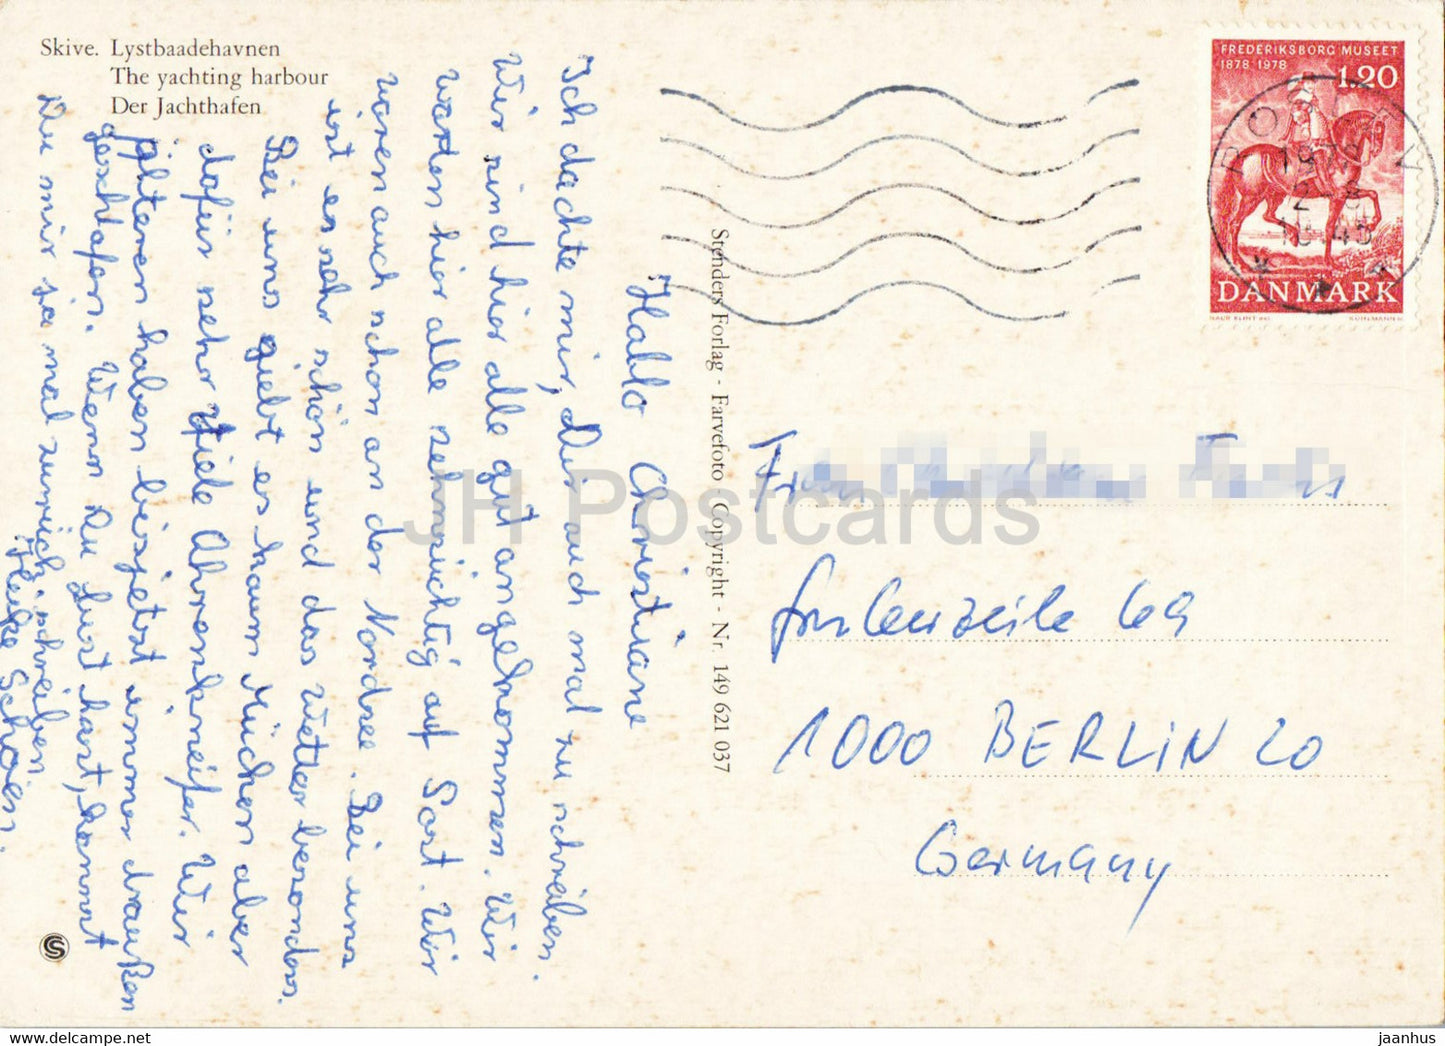 Skive. Lystbaadehavnen
The yachting harbour
Der Jachthafen
Hallo Christiane
Ich dachte mir, Dir auch mal zu schreiben.
Wir sind hier alle gut angekommen. Wir
warten hier alle sehnsüchtig auf Post. Wir
waren auch schon an der Nordsee. Bei uns
ist es sehr schön und das Wetter besonders.
Bei uns giebt es kaum Mücken aber
dafür sehr viele Ahrenkneifer. Wir
älteren haben bisjetzt immer draußen
geschlafen. Wenn Du Lust hast, kannst
Du mir ja mal zurück schreiben.
Heike
Stenders Forlag - Farvefoto - Copyright - Nr. 149 621 037
FREDERIKSBORG MUSEET
1878 1978
1.20
DANMARK
69
1000 BERLIN 20
Germany
JH Postcards
jaanhus